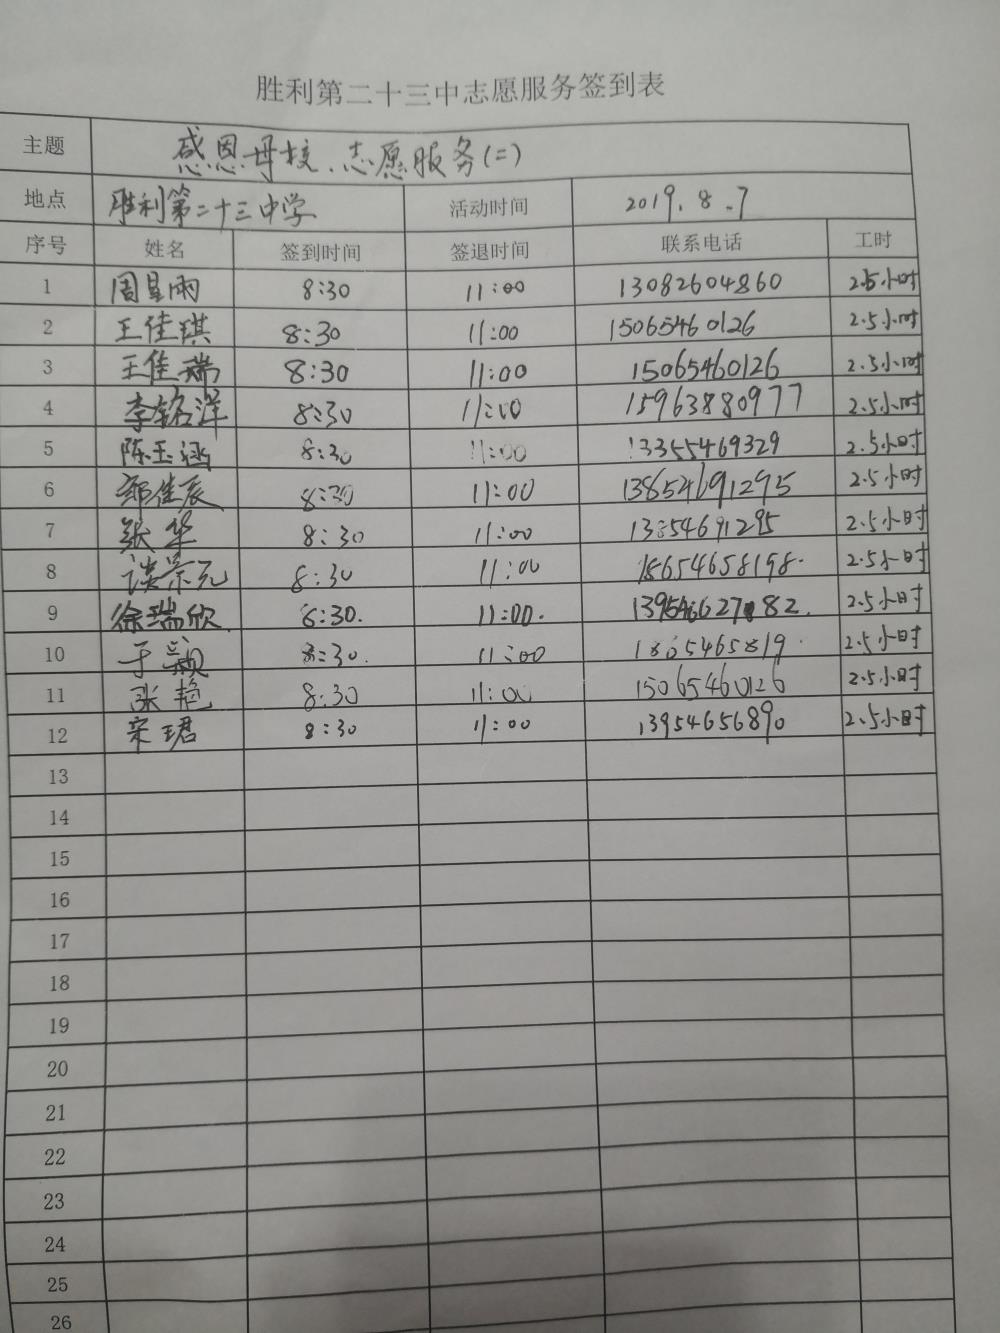 胜利第二十三中志愿服务签到表
主题 感恩母校、志愿服务(二)
地点 胜利第二十三中学 活动时间 2019.8.7
序号 姓名 签到时间 签退时间 联系电话 工时
1 周星雨 8:30 11:00 13082604860 2.5小时
2 王佳琪 8:30 11:00 15065460126 2.5小时
3 王佳瑞 8:30 11:00 15065460126 2.5小时
4 李铭洋 8:30 11:00 15963880977 2.5小时
5 陈玉涵 8:30 11:00 13355469329 2.5小时
6 郭佳辰 8:30 11:00 13854691295 2.5小时
7 张华 8:30 11:00 13854691295 2.5小时
8 谈景元 8:30 11:00 18654658198. 2.5小时
9 徐瑞欣. 8:30. 11:00. 2.5小时
10 于颖 8:30. 11:00 2.5小时
11 张艳 8:30 11:00 15065460126 2.5小时
12 宋珺 8:30 11:00 13954656890 2.5小时
13
14
15
16
17
18
19
20
21
22
23
24
25
26